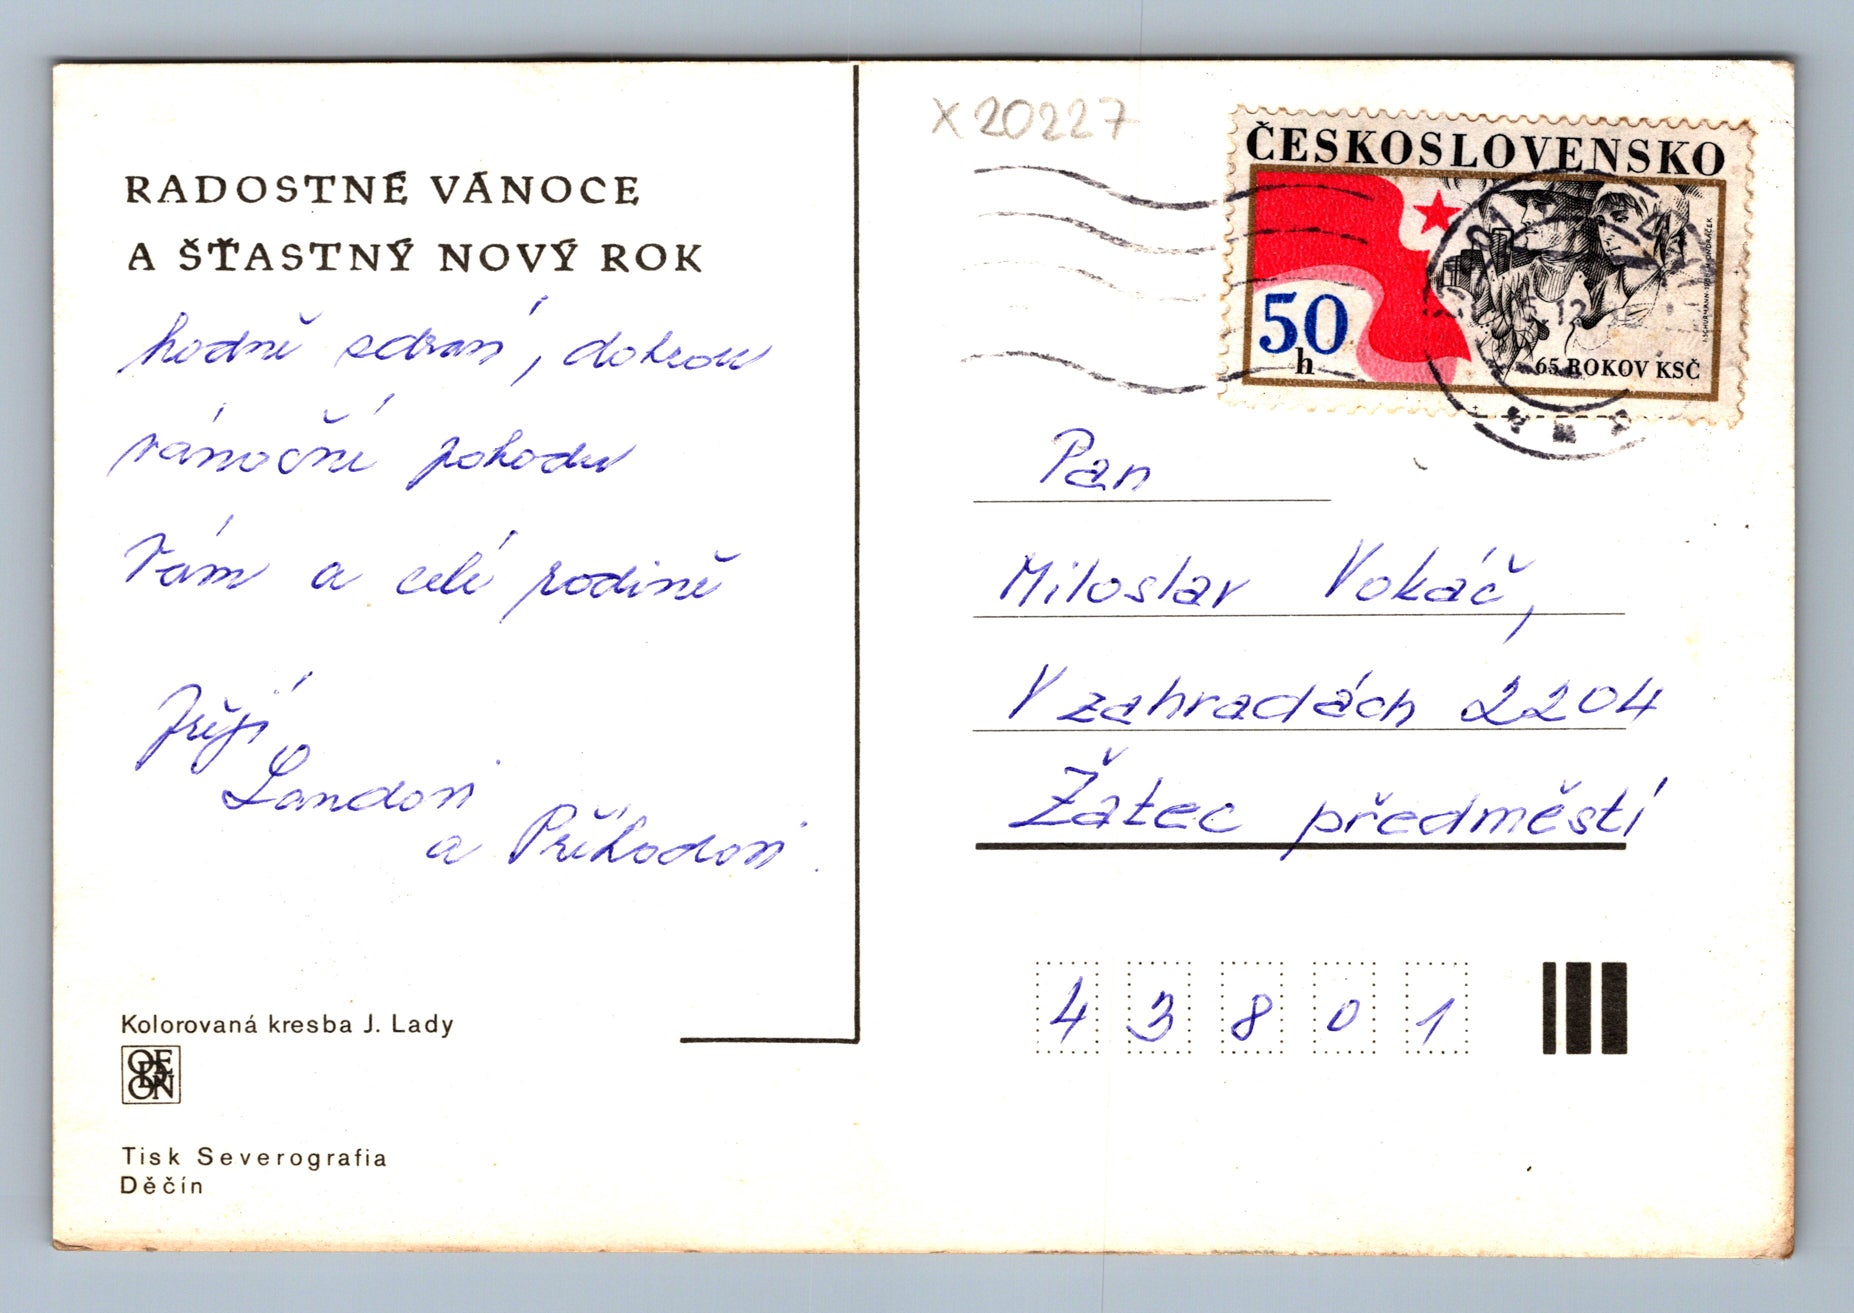 RADOSTNÉ VÁNOCE
A ŠŤASTNÝ NOVÝ ROK
hodně zdraví, dobrou
vánoční pohodu
Vám a celé rodině
Přejí
Landovi
a Příhodovi.
Kolorovaná kresba J. Lady
ODEON
Tisk Severografia
Děčín
X 20227
ČESKOSLOVENSKO
50
h
65 ROKOV KSČ
Pan
Miloslav Vokáč,
V zahradách 2204
Žatec předměstí
43801